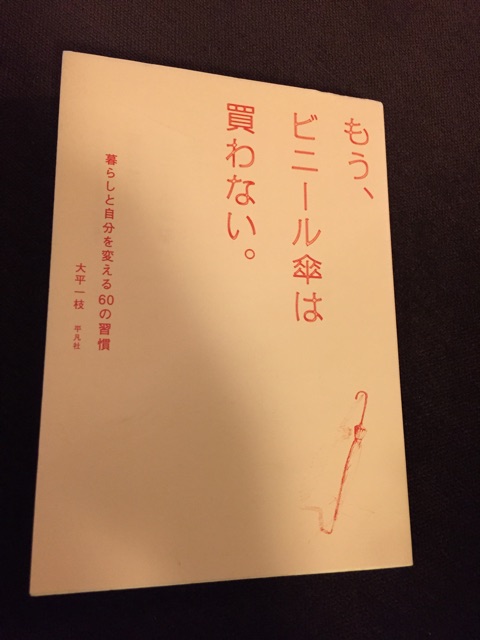 もう、
ビニール傘は
買わない。
暮らしと自分を変える60の習慣
大平一枝 平凡社